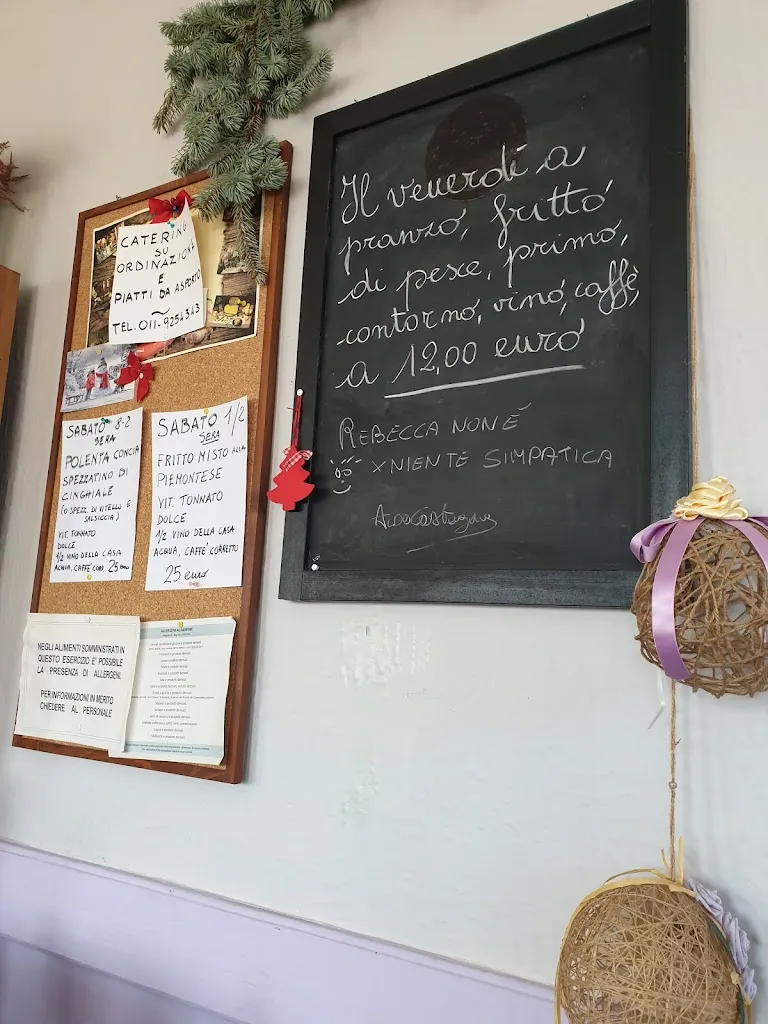 CATERING
SU
ORDINAZIONE
E
PIATTI DA ASPORTO
TEL. 011-9254343
SABATO 8-2
SERA
POLENTA CONCIA
SPEZZATINO DI
CINGHIALE
(O SPEZZ. DI VITELLO E
SALSICCIA)
VIT. TONNATO
DOLCE
1/2 VINO DELLA CASA
ACQUA, CAFFE' CORR. 25 euro
SABATO 1/2
SERA
FRITTO MISTO ALLA
PIEMONTESE
VIT. TONNATO
DOLCE
1/2 VINO DELLA CASA
ACQUA, CAFFE' CORRETTO
25 euro
NEGLI ALIMENTI SOMMINISTRATI IN
QUESTO ESERCIZIO E' POSSIBILE
LA PRESENZA DI ALLERGENI.
PER INFORMAZIONI IN MERITO
CHIEDERE AL PERSONALE
Il venerdí a
pranzo, fritto
di pesce, primo,
contorno, vino, caffè,
a 12,00 euro
REBECCA NON É
X NIENTE SIMPATICA